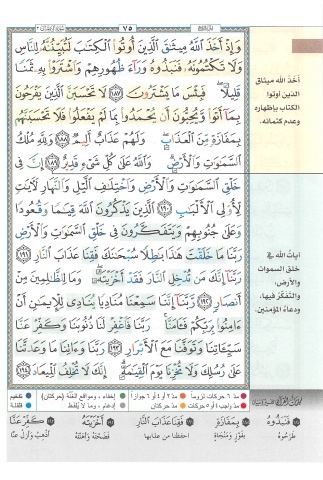 وَإِذْ أَخَذَ ٱللَّهُ مِيثَٰقَ ٱلَّذِينَ أُوتُوا۟ ٱلْكِتَٰبَ لَتُبَيِّنُنَّهُۥ لِلنَّاسِ
وَلَا تَكْتُمُونَهُۥ فَنَبَذُوهُ وَرَآءَ ظُهُورِهِمْ وَٱشْتَرَوْا۟ بِهِۦ ثَمَنًا
قَلِيلًا ۖ فَبِئْسَ مَا يَشْتَرُونَ ١٨٧ لَا تَحْسَبَنَّ ٱلَّذِينَ يَفْرَحُونَ
بِمَآ أَتَوا۟ وَّيُحِبُّونَ أَن يُحْمَدُوا۟ بِمَا لَمْ يَفْعَلُوا۟ فَلَا تَحْسَبَنَّهُم
بِمَفَازَةٍ مِّنَ ٱلْعَذَابِ ۖ وَلَهُمْ عَذَابٌ أَلِيمٌ ١٨٨ وَلِلَّهِ مُلْكُ
ٱلسَّمَٰوَٰتِ وَٱلْأَرْضِ ۗ وَٱللَّهُ عَلَىٰ كُلِّ شَىْءٍ قَدِيرٌ ١٨٩ إِنَّ فِى
خَلْقِ ٱلسَّمَٰوَٰتِ وَٱلْأَرْضِ وَٱخْتِلَٰفِ ٱلَّيْلِ وَٱلنَّهَارِ لَءَايَٰتٍ
لِّأُو۟لِى ٱلْأَلْبَٰبِ ١٩٠ ٱلَّذِينَ يَذْكُرُونَ ٱللَّهَ قِيَٰمًا وَقُعُودًا
وَعَلَىٰ جُنُوبِهِمْ وَيَتَفَكَّرُونَ فِى خَلْقِ ٱلسَّمَٰوَٰتِ وَٱلْأَرْضِ
رَبَّنَا مَا خَلَقْتَ هَٰذَا بَٰطِلًا سُبْحَٰنَكَ فَقِنَا عَذَابَ ٱلنَّارِ ١٩١
رَبَّنَآ إِنَّكَ مَن تُدْخِلِ ٱلنَّارَ فَقَدْ أَخْزَيْتَهُۥ ۖ وَمَا لِلظَّٰلِمِينَ مِنْ
أَنصَارٍ ١٩٢ رَّبَّنَآ إِنَّنَا سَمِعْنَا مُنَادِيًا يُنَادِى لِلْإِيمَٰنِ أَنْ
ءَامِنُوا۟ بِرَبِّكُمْ فَـَٔامَنَّا ۚ رَبَّنَا فَٱغْفِرْ لَنَا ذُنُوبَنَا وَكَفِّرْ عَنَّا
سَيِّـَٔاتِنَا وَتَوَفَّنَا مَعَ ٱلْأَبْرَارِ ١٩٣ رَبَّنَا وَءَاتِنَا مَا وَعَدتَّنَا
عَلَىٰ رُسُلِكَ وَلَا تُخْزِنَا يَوْمَ ٱلْقِيَٰمَةِ ۗ إِنَّكَ لَا تُخْلِفُ ٱلْمِيعَادَ ١٩٤
أخذ الله ميثاق
الذين أوتوا
الكتاب بإظهاره
وعدم كتمانه.
آيات الله في
خلق السموات
والأرض،
والتفكر فيها،
ودعاء المؤمنين.
مد ٦ حركات لزوما مد ٢ أو ٤ أو ٦ جوازا إخفاء، ومواقع الغنة (حركتان) تفخيم
مد واجب ٤ أو ٥ حركات مد حركتان إدغام، وما لا يلفظ قلقلة
فَنَبَذُوهُ بِمَفَازَةٍ فَقِنَا عَذَابَ ٱلنَّارِ أَخْزَيْتَهُ كَفِّرْ عَنَّا
طرحوه بفوز ومنجاة احفظنا من عذابها فضحته وأهنته أذهب وأزل عنا